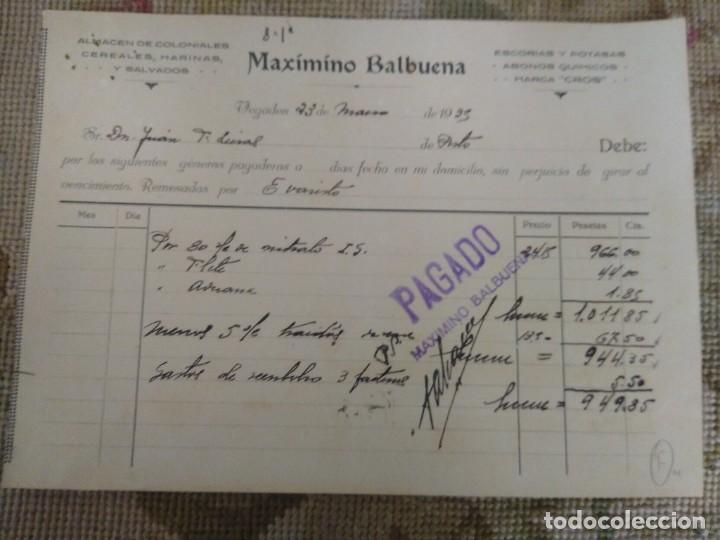 ALMACEN DE COLONIALES
CEREALES, HARINAS,
Y SALVADOS
Maximino Balbuena
ESCORIAS Y POTASAS
ABONOS QUIMICOS
MARCA "CROS"
Vegadeo 23 de Marzo de 1935
Sr. Dn. Juán F. de Debe:
por los siguientes géneros pagaderos a días fecha en mi domicilio, sin perjuicio de girar al
vencimiento. Remesados por Evaristo
Mes Día Precio Pesetas Cts.
Por 80 de nitrato 966.00
" Flete 44.00
" Aduana 1.85
PAGADO
MAXIMINO BALBUENA
Suma = 1.011.85
Menos 5 67.50
= 944.35
Gastos de reembolso 3 facturas 5.50
Suma = 949.85
F
todocoleccion